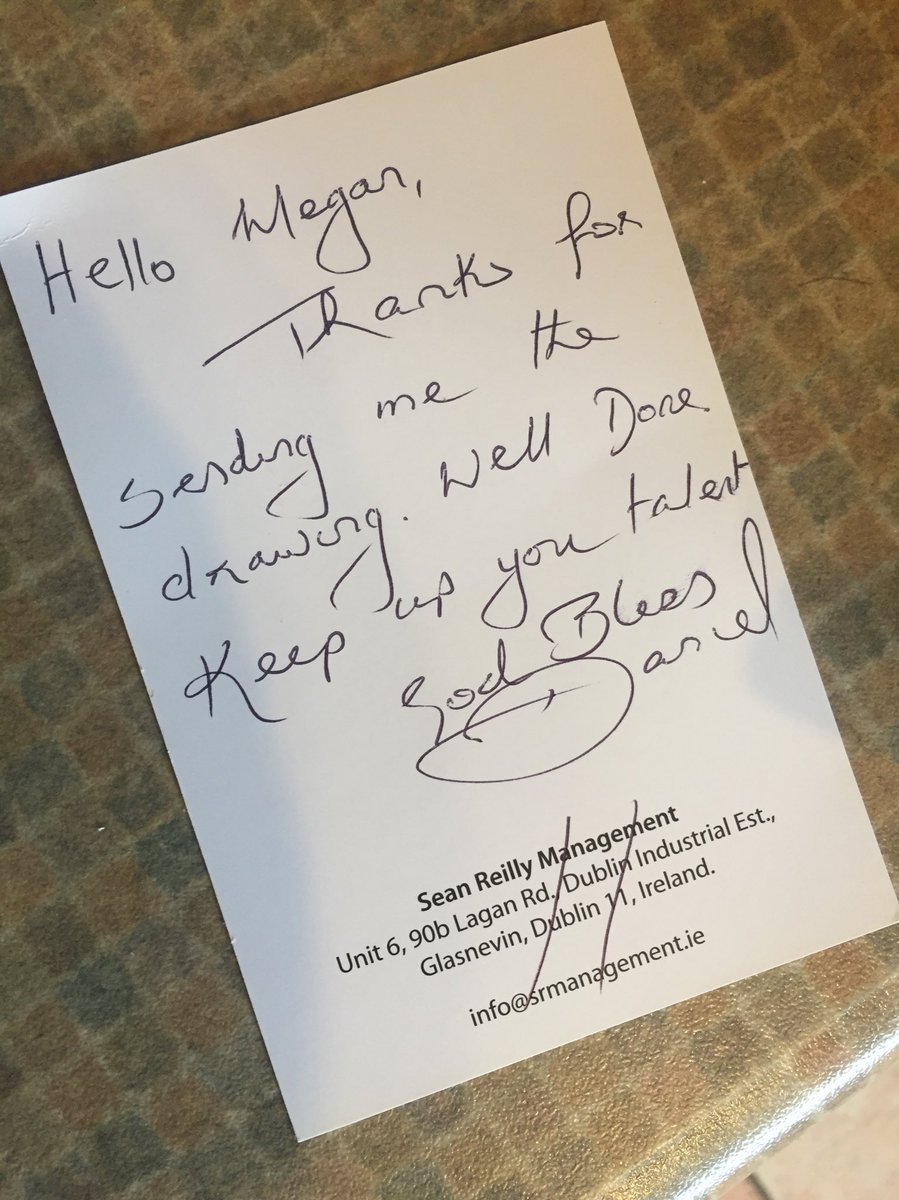 Hello Megan,
Thanks for
sending me the
drawing. Well Done
Keep up you talent
God Bless
Daniel
Sean Reilly Management
Unit 6, 90b Lagan Rd., Dublin Industrial Est.,
Glasnevin, Dublin 11, Ireland.
info@srmanagement.ie